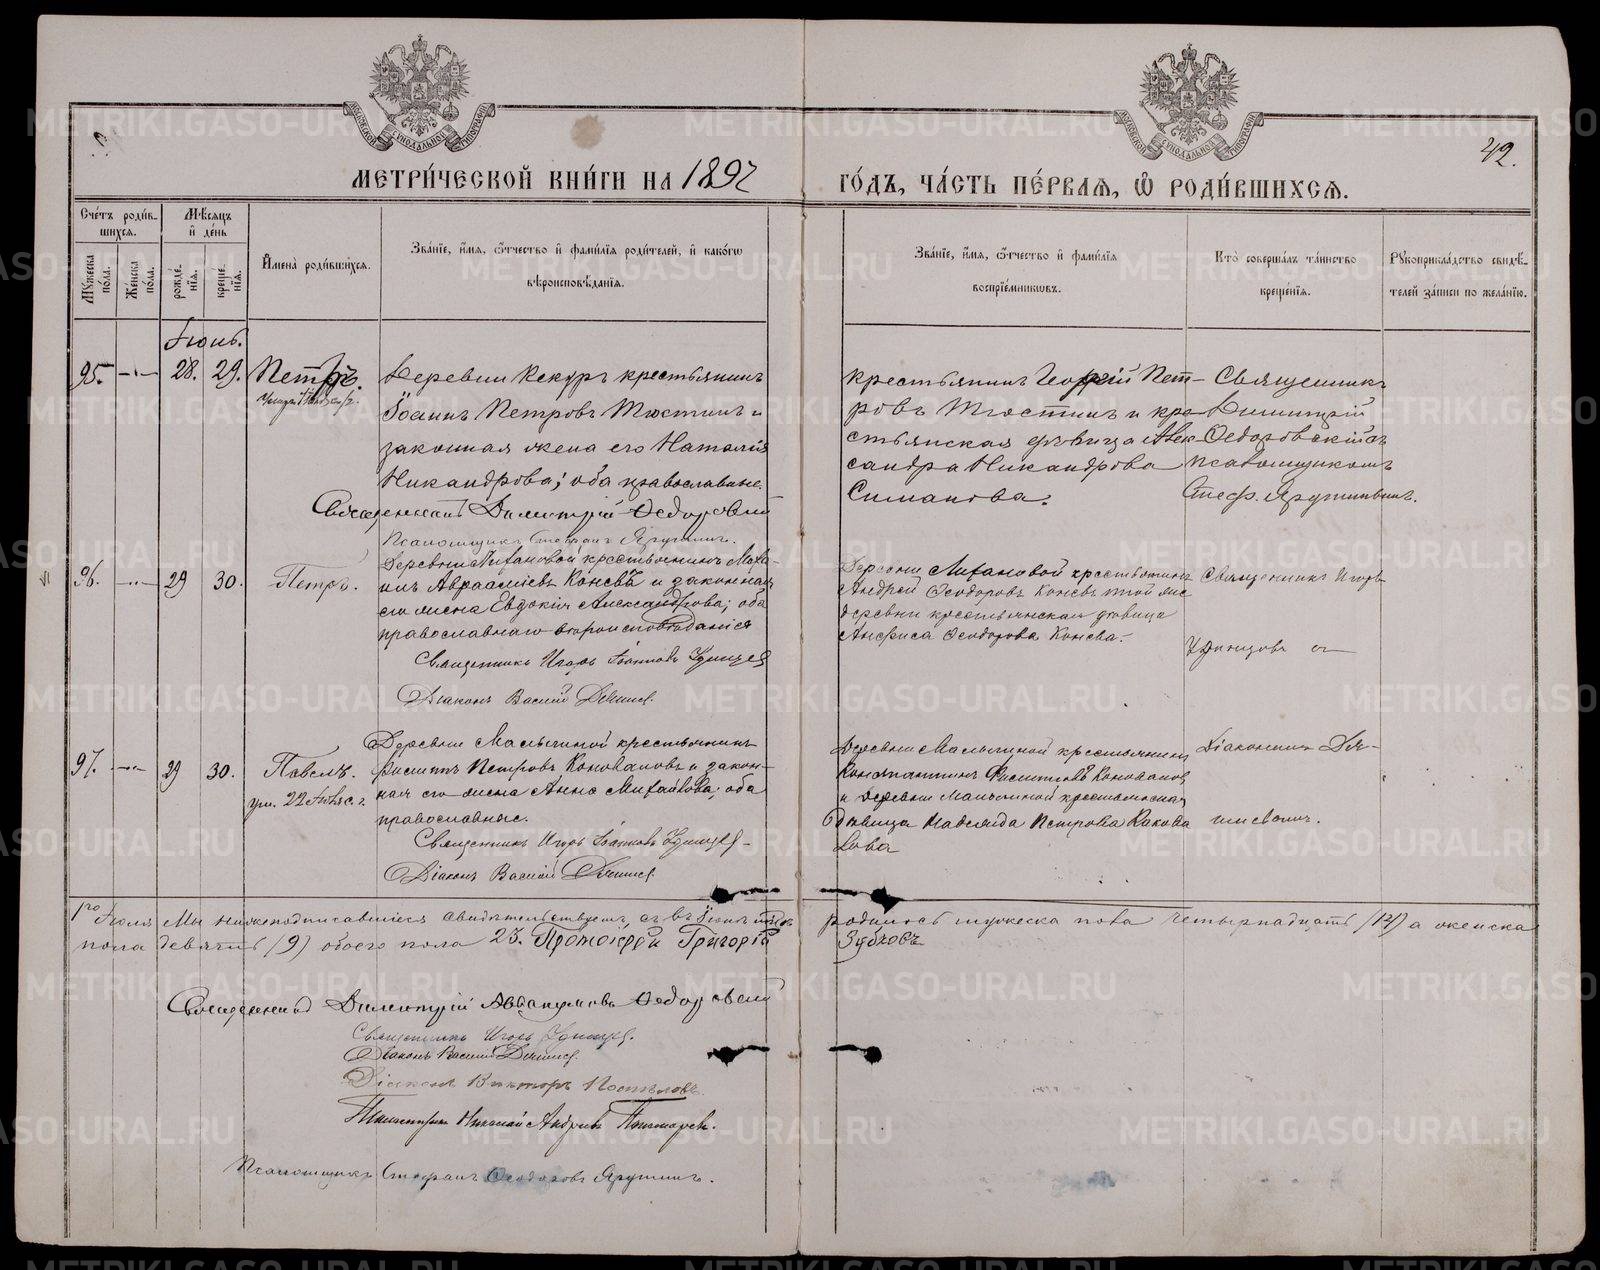 МЕТРИ́ЧЕСКОЙ КНИ́ГИ НА 1897 ГО́ДЪ, ЧА́СТЬ ПЕ́РВАЯ, Ѽ РОДИ́ВШИХСЯ.
42.
Сче́тъ роди́в-
шихся.
Мѣ́сяцъ
и де́нь
Му́жеска по́ла.
Же́нска по́ла.
рожде́-нїя.
креще́-нїя.
И҆мена̀ роди́вшихся.
Зва́нїе, и҆́мя, ѻ҆́тчество и҆ фами́лїя роди́телей, и҆ како́гѡ
вѣроисповѣ́данїя.
Зва́нїе, и҆́мя, ѻ҆́тчество и҆ фами́лїя
воспрїе́мниковъ.
Кто̀ соверша́лъ та́инство
креще́нїя.
Рукоприкла́дство свидѣ́-
телей за́писи по жела́нїю.
Іюнь.
95. 28. 29. Петръ.
Деревни Кекуръ крестьянинъ
Іоаннъ Петровъ Тюстинъ и
законная жена его Наталія
Никандрова; оба православные.
Священникъ Димитрій Ѳедоровскій
Псаломщикъ Стефанъ Ярутинъ.
крестьянинъ Георгій Пет-
ровъ Тюстинъ и кре-
стьянская дѣвица Алек-
сандра Никандрова
Симанова.
Священникъ
Димитрій
Ѳедоровскій съ
псаломщикомъ
Стеф. Ярутинымъ.
96. 29 30. Петръ.
Деревни крестьянинъ Миха-
илъ Авраамїевъ Коневъ и законная
его жена Евдокія Александрова; оба
православнаго вѣроисповѣданія
Священникъ Игорь Іоанновъ Удинцев
Діаконъ Василій
Деревни крестьянинъ
Андрей Ѳеодоровъ Коневъ той же
деревни крестьянская дѣвица
Анфиса Ѳеодорова Конева.
Священникъ Игорь
Удинцовъ съ
97. 29 30. Павелъ.
ум. 22 Іюля с. г.
Деревни Малыгиной крестьянинъ
Филиппъ Петровъ Коноваловъ и закон-
ная его жена Анна Михайлова; оба
православные.
Священникъ Игорь Іоанновъ Удинцев
Діаконъ Василій
Деревни Малыгиной крестьянинъ
Константинъ Филипповъ Коновалов
и деревни Малыгиной крестьянская
дѣвица Петрова Конова
лова
Діакономъ
1го Іюля Мы нижеподписавшіеся свидѣтельствуемъ, что въ Іюнѣ родилось мужеска пола четырнадцать /14/ а женска
пола девять /9/ обоего пола 23. Протоіерей Григорій Зубковъ
Священникъ Димитрій Аввакумовъ Ѳедоровскій
Священникъ Игорь Удинцев.
Діаконъ Василій
Діаконъ Викторъ
Псаломщикъ Николай Андреев Пономарев.
Псаломщикъ Стефанъ Ѳеодоровъ Ярутинъ.
METRIKI.GASO-URAL.RU